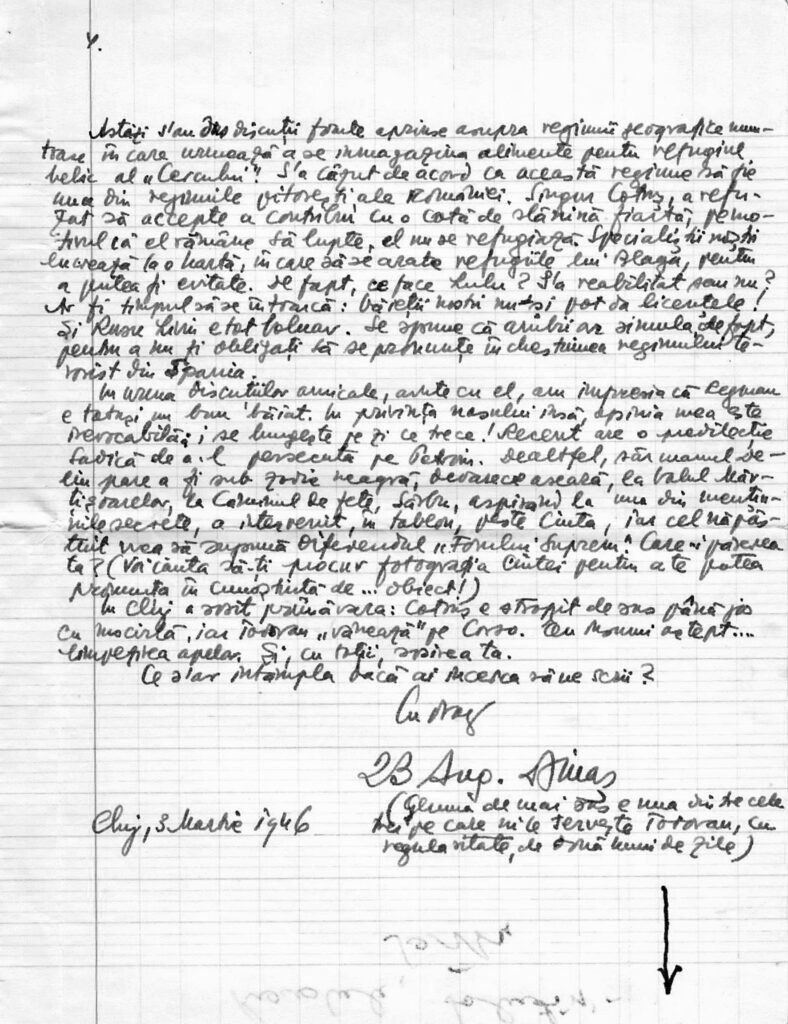 4.
Astăzi s'au dus discuții foarte aprinse asupra regiunii geografice mun-
toase în care urmează a se înmagazina alimente pentru refugiul
belic al „Cercului". S'a căzut de acord ca această regiune să fie
una din regiunile pitorești ale României. Singur Cotruș, a refu-
zat să accepte a contribui cu o cotă de slănină fiartă, pe mo-
tivul că el rămâne să lupte, el nu se refugiază. Specialiștii noștri
lucrează la o hartă, în care să se arate refugiile lui Blaga, pentru
a putea fi evitate. De fapt, ce face Lulu? S'a reabilitat sau nu?
Ar fi timpul să se întoarcă: băieții noștri nu-și pot da licențele!
Și Rusu Liviu e tot bolnav. Se spune că amândoi ar simula, de fapt,
pentru a nu fi obligați să se pronunțe în chestiunea regimului te-
rorist din Spania.
In urma discuțiilor amicale, avute cu el, am impresia că Regman
e totuși un bun băiat. In privința nasului însă, opinia mea este
irevocabilă: i se lungește pe zi ce trece! Recent are o predilecție
sadică de a-l persecuta pe Petroiu. Dealtfel, sărmanul De-
liu pare a fi sub zodie neagră, deoarece aseară, la balul Măr-
țișoarelor, la Căminul de fete, Sârbu, aspirând la una din
secrete, a intervenit, în tablou, peste Cinta, iar cel năpăs-
tuit vrea să supună diferendul „Forului Suprem". Care-i părerea
ta? (Voi căuta să-ți procur fotografia Cintei pentru a te putea
pronunța în cunoștință de... obiect!)
In Cluj a sosit primăvara: Cotruș e stropit de sus până jos
cu mocirlă, iar Todoran „vânează" pe Corso. Eu nu mai aștept....
limpezirea apelor. Și, cu toții, sosirea ta.
Ce s'ar întâmpla dacă ai încerca să ne scrii?
Cu drag
23 Aug.
(Gluma de mai sus e una dintre cele
trei pe care ni le servește Todoran, cu
regularitate, de două luni de zile)
Cluj, 3 Martie 1946